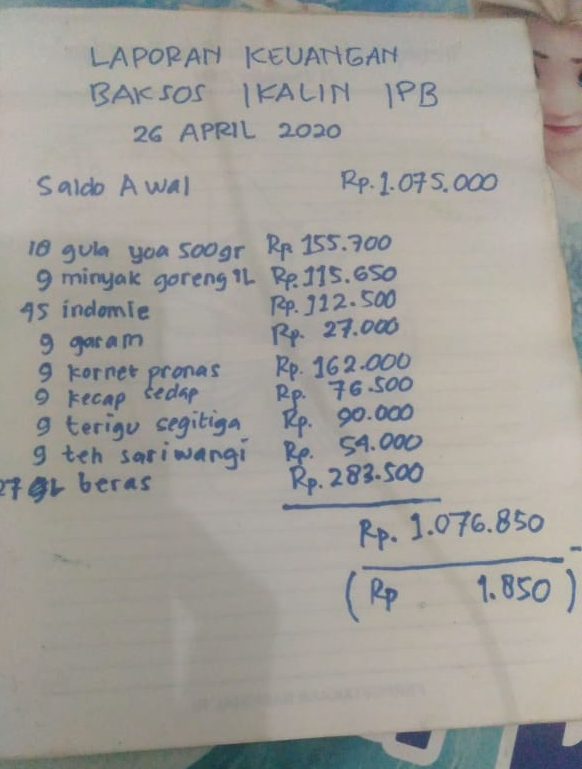 LAPORAN KEUANGAN
BAKSOS IKALIN IPB
26 APRIL 2020
Saldo Awal Rp. 1.075.000
18 gula yoa 500gr Rp 155.700
9 minyak goreng 1L Rp. 115.650
45 indomie Rp. 112.500
9 garam Rp. 27.000
9 kornet pronas Rp. 162.000
9 kecap sedap Rp. 76.500
9 terigu segitiga Rp. 90.000
9 teh sariwangi Rp. 54.000
27 L beras Rp. 283.500
Rp. 1.076.850 -
(Rp 1.850)